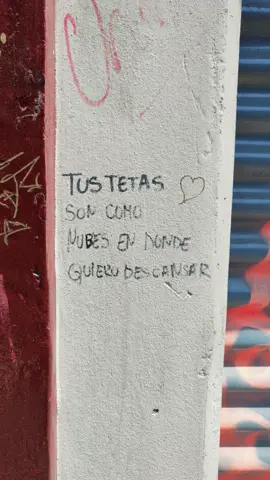 TUS TETAS
SON COMO
NUBES EN DONDE
QUIERO DESCANSAR